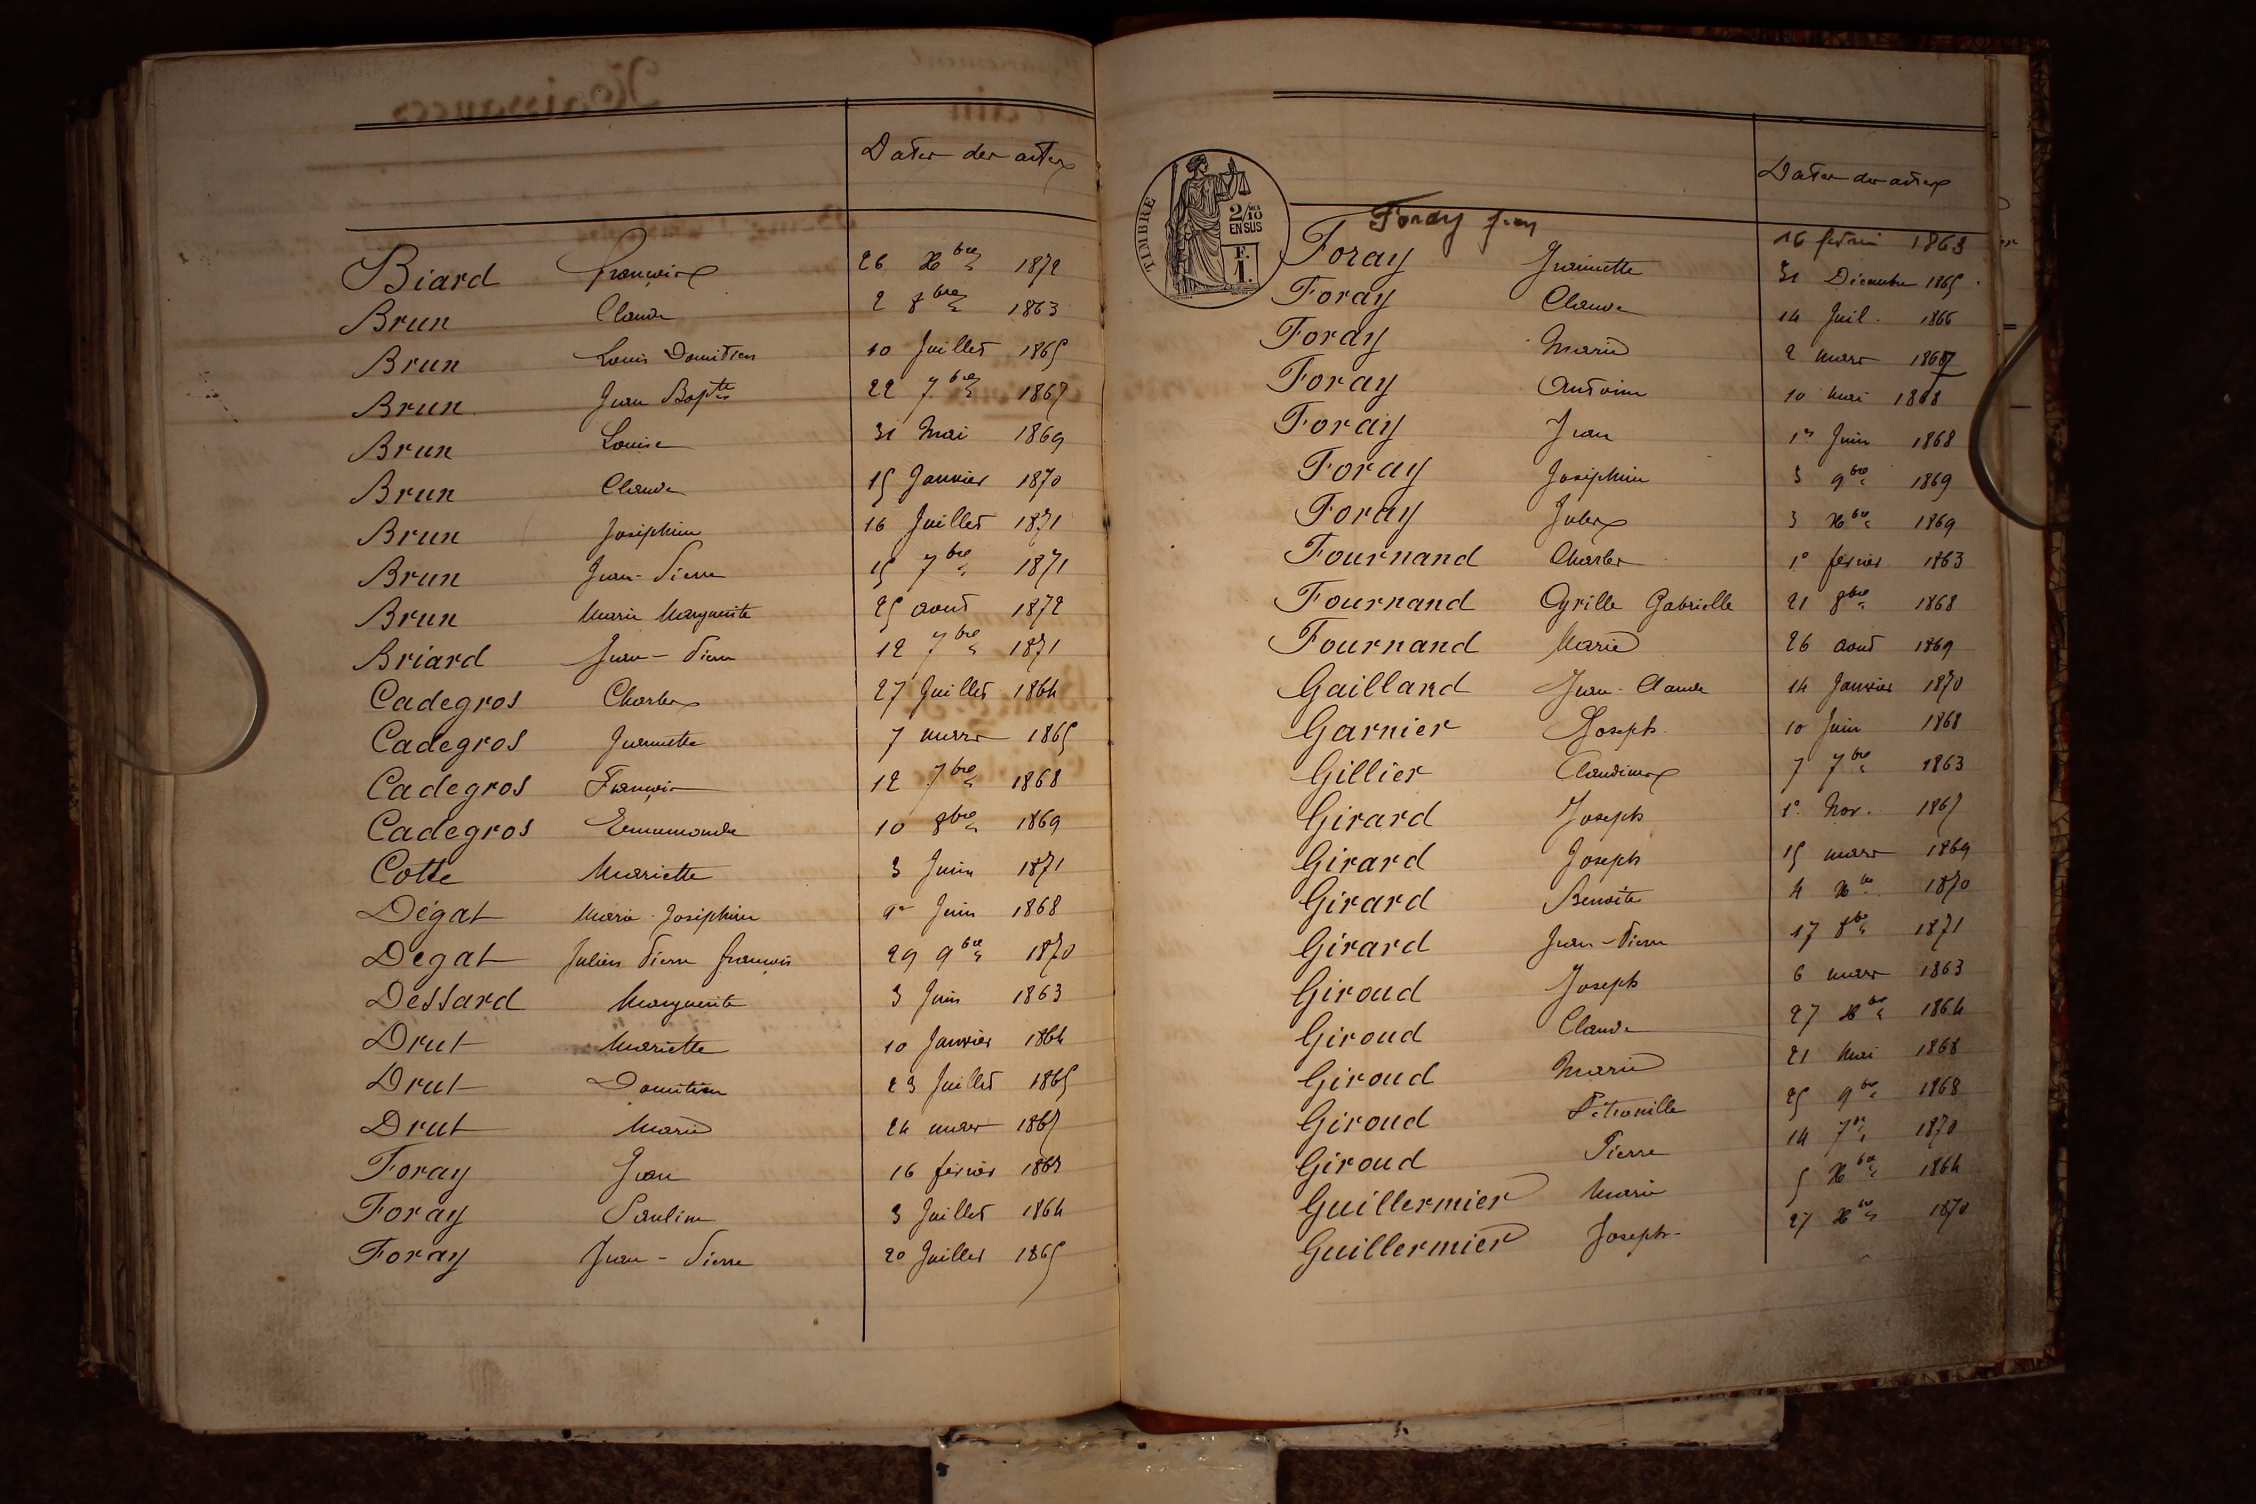 Dates des actes
Biard François 26 Xbre 1872
Brun Claude 2 8bre 1863
Brun Louis Domitien 10 Juillet 1865
Brun Jean Baptte 22 7bre 1867
Brun Louise 31 Mai 1869
Brun Claude 15 Janvier 1870
Brun Joséphine 16 Juillet 1871
Brun Jean-Pierre 15 7bre 1871
Brun Marie Marguerite 25 aout 1872
Briard Jean-Pierre 12 7bre 1871
Cadegros Charles 27 Juillet 1864
Cadegros Jeannette 7 mars 1865
Cadegros François 12 7bre 1868
Cadegros 10 8bre 1869
Cotte Mariette 3 Juin 1871
Dégat Marie-Joséphine Juin 1868
Degat Julien Pierre François 29 9bre 1870
Dessard Marguerite 3 Juin 1863
Drut Mariette 10 Janvier 1864
Drut Domitien 23 Juillet 1865
Drut Marie 24 mars 1867
Foray Jean 16 février
Foray Pauline 3 Juillet 1864
Foray Jean-Pierre 20 Juillet 1865
TIMBRE
2/10 EN SUS
F. 1.
Dates des actes
Foray Jean 16 février 1863
Foray Jeannette 31 Décembre 1865
Foray Claude 14 Juil. 1866
Foray Marie 2 mars 1867
Foray Antoine 10 mai 1868
Foray Jean 1er Juin 1868
Foray Joséphine 3 9bre 1869
Foray Jules 3 Xbre 1869
Fournand Charles 1° février 1863
Fournand Cyrille Gabrielle 21 8bre 1868
Fournand Marie 26 aout 1869
Gailland Jean-Claude 14 Janvier 1870
Garnier Joseph 10 Juin 1868
Gillier Claudine 7 7bre 1863
Girard Joseph 1° Nov. 1867
Girard Joseph 15 mars 1869
Girard Benoîte 4 Xbre 1870
Girard Jean-Pierre 17 8bre 1871
Giroud Joseph 6 mars 1863
Giroud Claude 27 Xbre 1864
Giroud Marie 21 Mai 1868
Giroud Pétronille 25 9bre 1868
Giroud Pierre 14 7bre 1870
Guillermier Marie 5 Xbre 1864
Guillermier Joseph 27 Xbre 1870